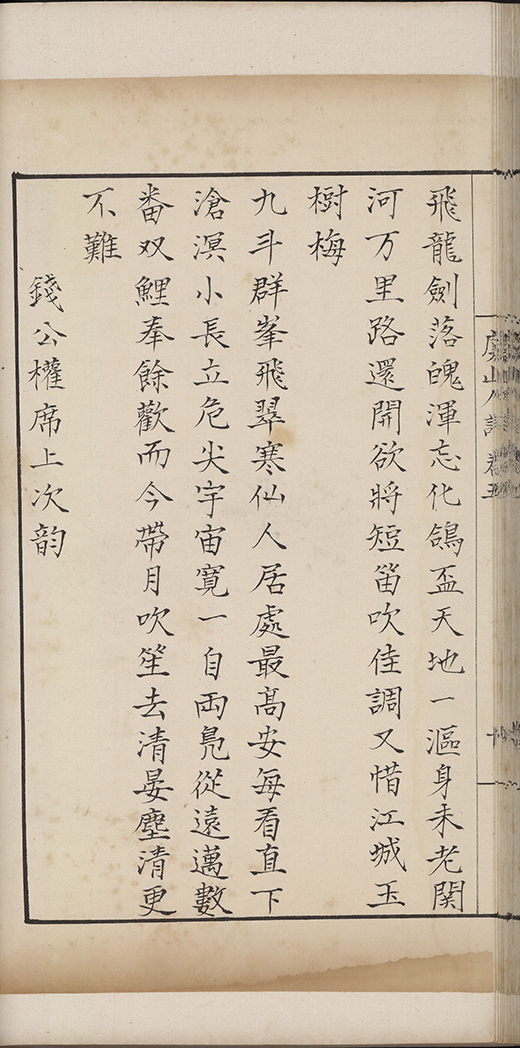 飛龍劍落魄渾忘化鴿盃天地一漚身未老関
河万里路還開欲將短笛吹佳調又惜江城玉
樹梅
九斗群峯飛翠寒仙人居處最髙安每看直下
滄溟小長立危尖宇宙寛一自両凫從遠邁數
畨双鯉奉餘歡而今帶月吹笙去清晏塵清更
不難
錢公權席上次韵
虞山人詩卷五